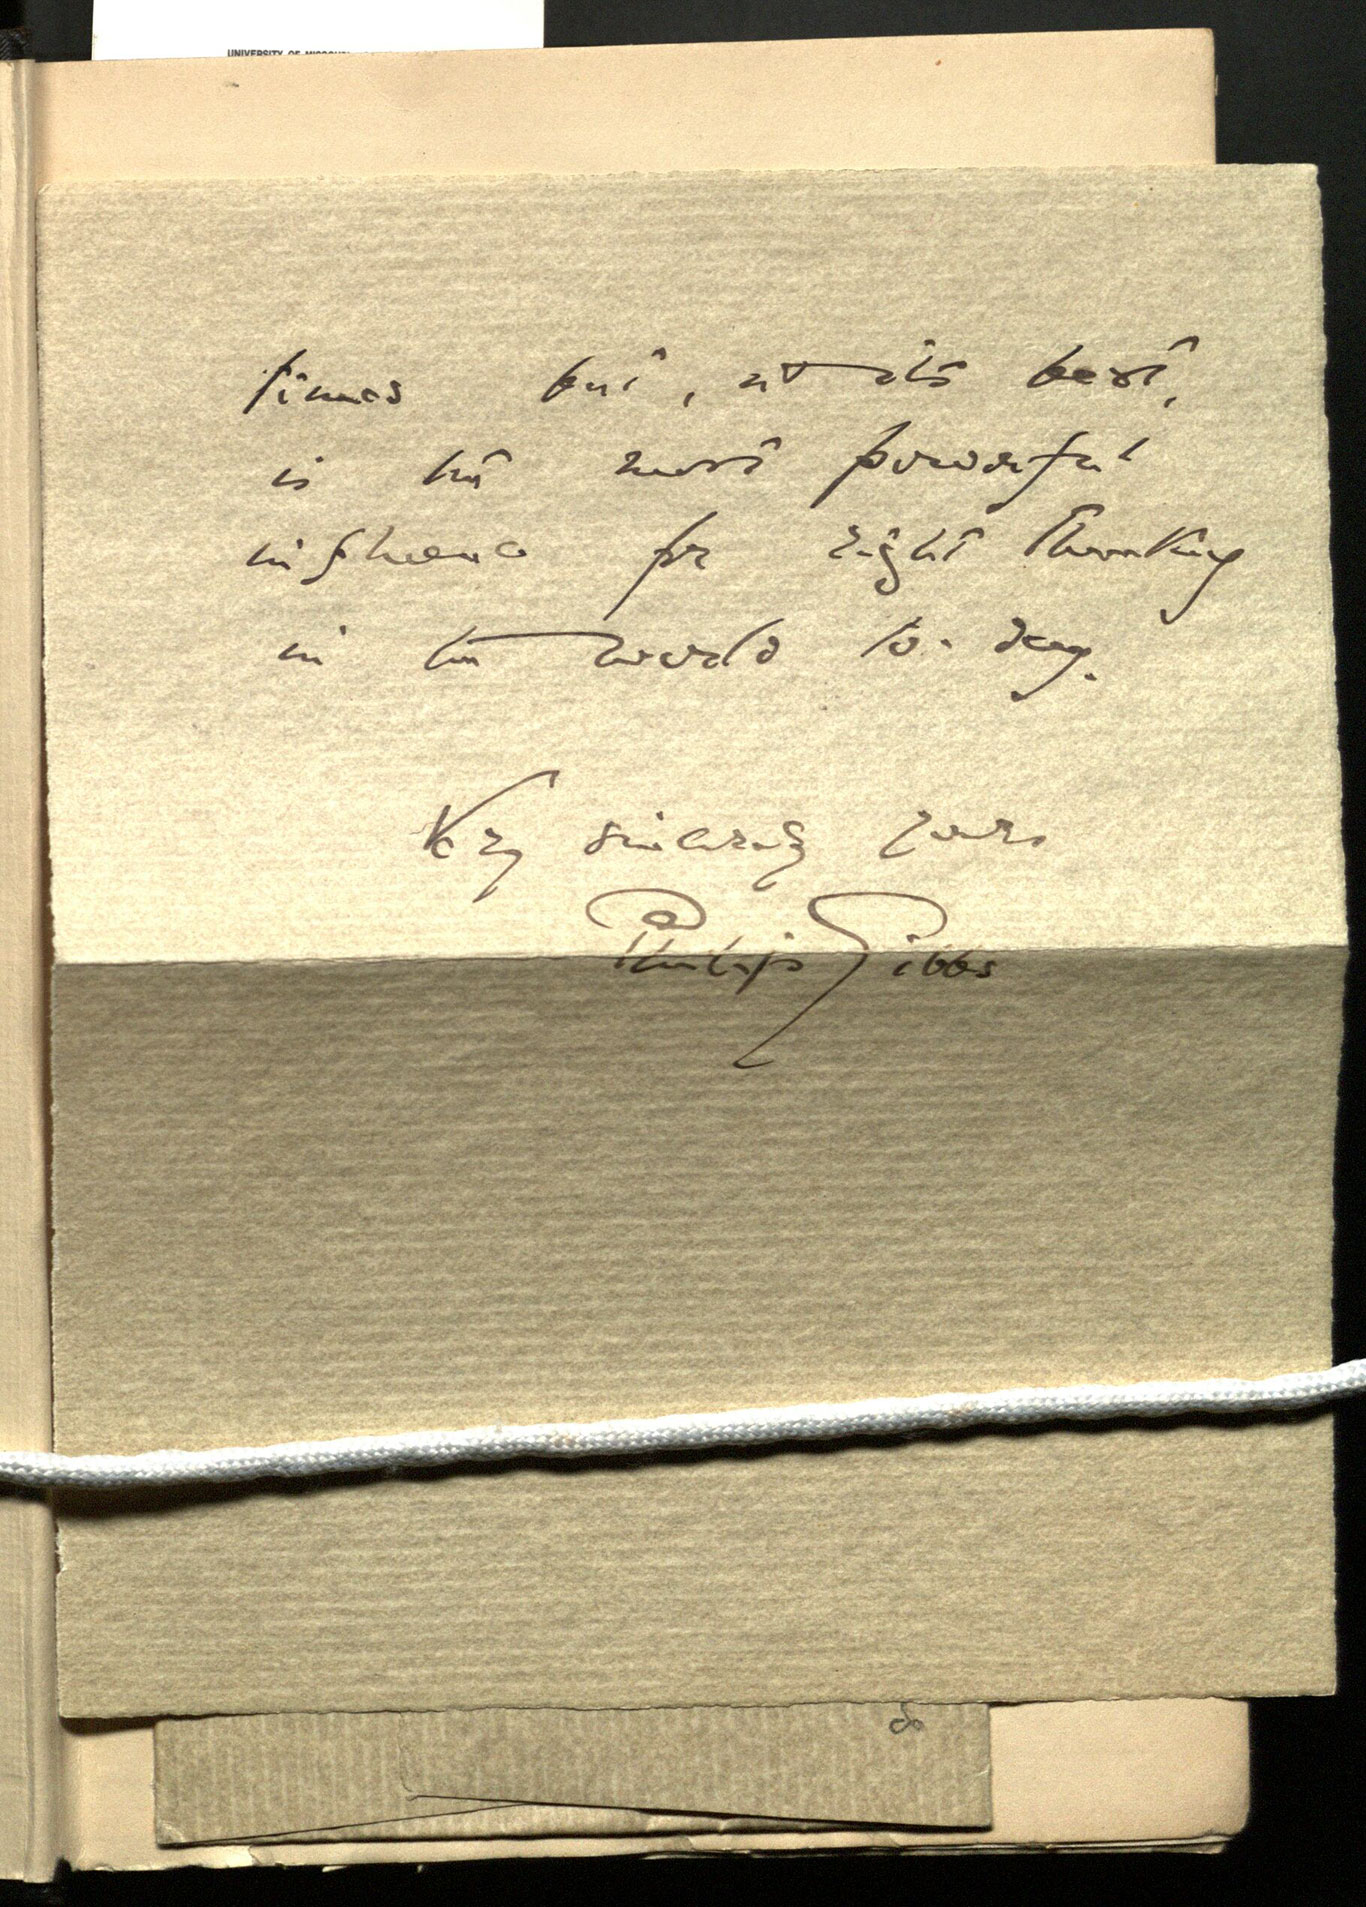 UNIVERSITY OF MISSOURI
times but, at its best,
is the most powerful
influence for right thinking
in the world to-day.
Very sincerely yours
Philip Gibbs